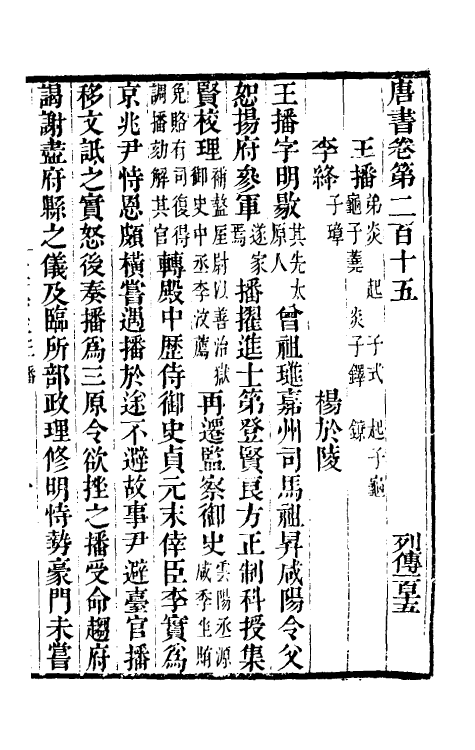 唐書卷第二百十五　列傳一百五
王播弟炎　起　子式　起子龜
龜子蕘　炎子鐸　鐐
李絳子璋　楊於陵
王播字明敭其先太原人曾祖璡嘉州司馬祖昇咸陽令父
恕揚府參軍遂家焉播擢進士第登賢良方正制科授集
賢校理補盩厔尉以善治獄御史中丞李汶薦再遷監察御史雲陽丞源咸季坐賄
免賂有司復得調播劾解其官轉殿中歷侍御史貞元末倖臣李實爲
京兆尹恃恩頗橫嘗遇播於途不避故事尹避臺官播
移文詆之實怒後奏播爲三原令欲挫之播受命趨府
謁謝盡府縣之儀及臨所部政理修明恃勢豪門未嘗